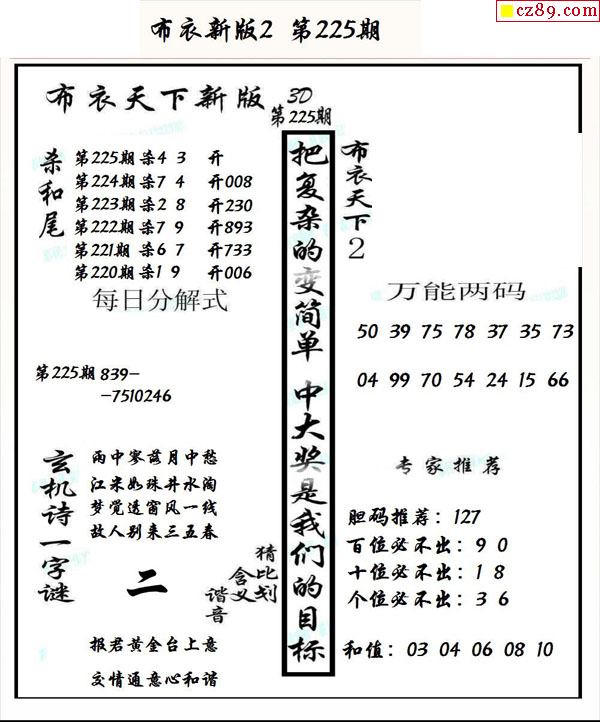 cz89.com
布衣新版2 第225期
布衣天下新版
3D
第225期
杀和尾
第225期杀4 3 开
第224期杀7 4 开008
第223期杀2 8 开230
第222期杀7 9 开893
第221期杀6 7 开733
第220期杀1 9 开006
每日分解式
第225期839-
-7510246
玄机诗一字谜
雨中寥落月中愁
江米如珠井水淘
梦觉透窗风一线
故人别来三五春
二
猜比划
含义
谐音
报君黄金台上意
交情通意心和谐
把复杂的变简单 中大奖是我们的目标
布衣天下2
万能两码
50 39 75 78 37 35 73
04 99 70 54 24 15 66
专家推荐
胆码推荐：127
百位必不出：9 0
十位必不出：1 8
个位必不出：3 6
和值：03 04 06 08 10